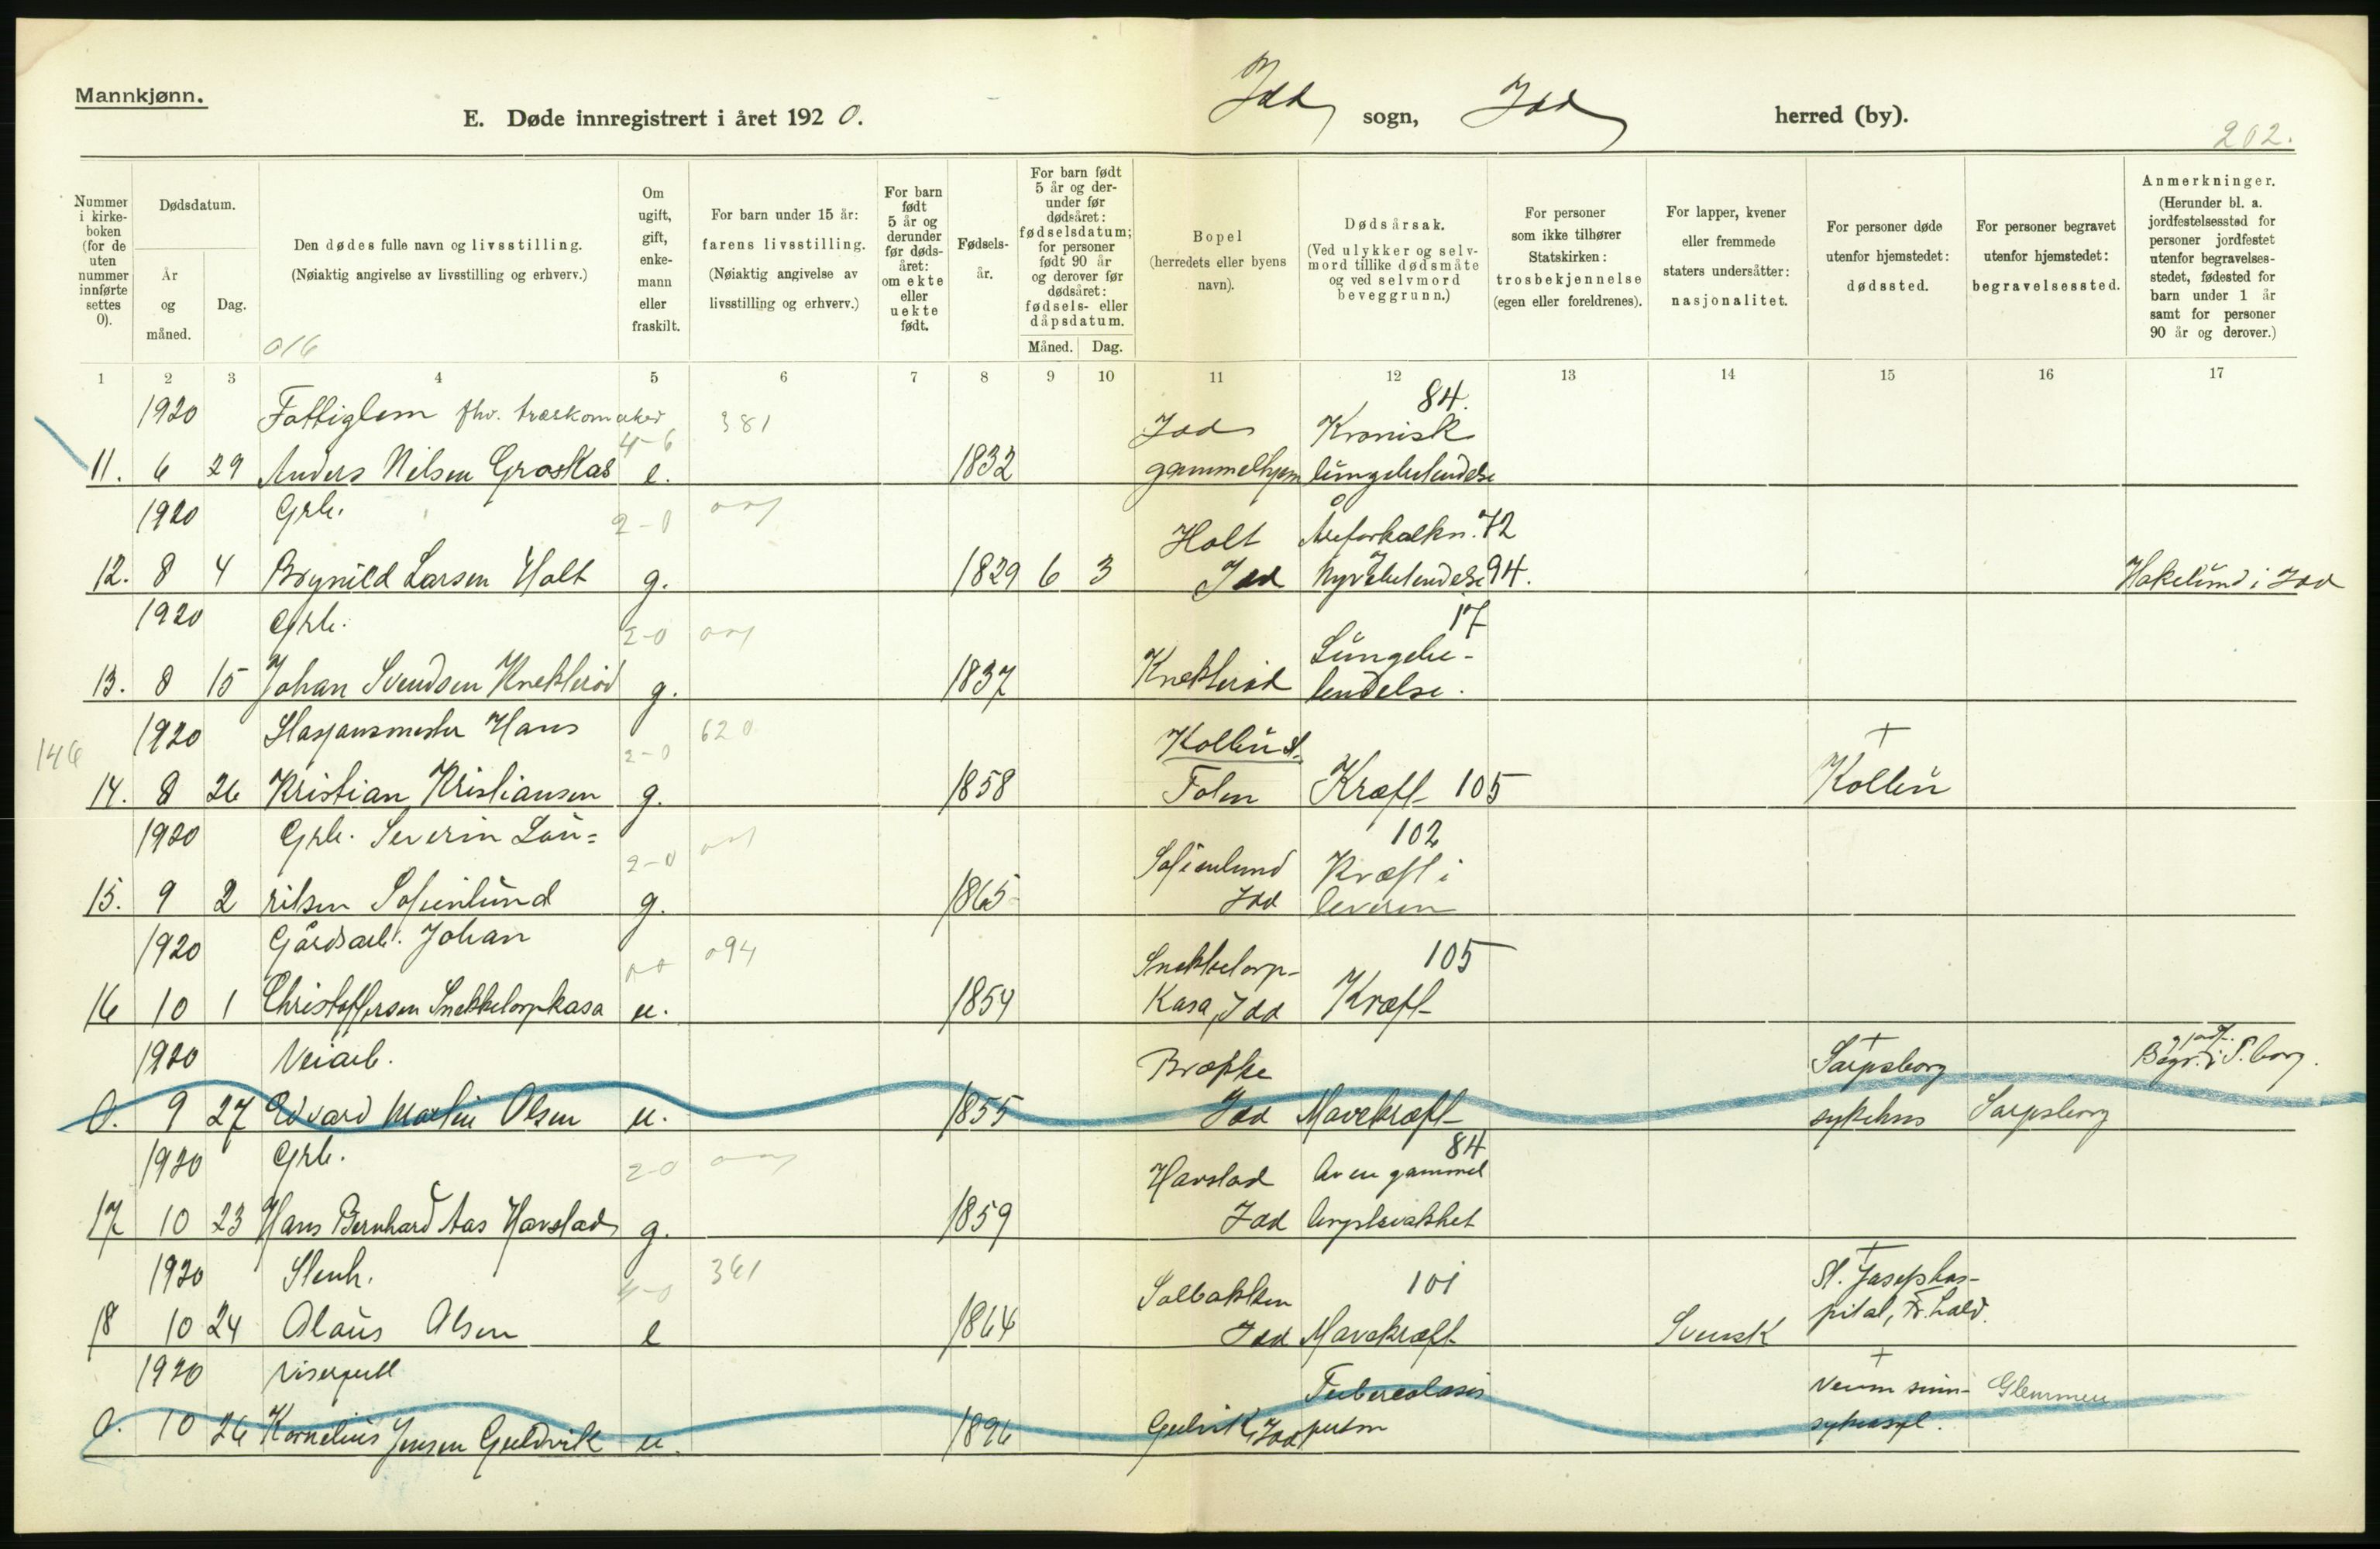 Mannkjønn.
E. Døde innregistrert i året 1920.
Idd sogn, Idd herred (by).
202.
Nummer i kirke-boken (for de uten nummer innførte settes 0).
Dødsdatum.
År og måned.
Dag.
Den dødes fulle navn og livsstilling.
(Nøiaktig angivelse av livsstilling og erhverv.)
016
Om ugift, gift, enke-mann eller fraskilt.
For barn under 15 år:
farens livsstilling.
(Nøiaktig angivelse av livsstilling og erhverv.)
For barn født 5 år og derunder før døds-året: om ekte eller uekte født.
Fødsels-år.
For barn født 5 år og der-under før dødsåret: fødselsdatum; for personer født 90 år og derover før dødsåret: fødsels- eller dåpsdatum.
Måned. Dag.
Bopel
(herredets eller byens navn).
Dødsårsak.
(Ved ulykker og selv-mord tillike dødsmåte og ved selvmord beveggrunn.)
For personer som ikke tilhører Statskirken: trosbekjennelse (egen eller foreldrenes).
For lapper, kvener eller fremmede staters undersåtter: nasjonalitet.
For personer døde utenfor hjemstedet: dødssted.
For personer begravet utenfor hjemstedet: begravelsessted.
Anmerkninger.
(Herunder bl. a. jordfestelsessted for personer jordfestet utenfor begravelses-stedet, fødested for barn under 1 år samt for personer 90 år og derover.)
1 2 3 4 5 6 7 8 9 10 11 12 13 14 15 16 17
1920 Fattiglem fhv. træskomaker 4-6 381 Idd Kronisk 84.
11. 6 29 Anders Nilsen Groskas e. 1832 gammelhjem lungebetendelse
1920 Grb. 2-0 Holt Åreforkalkn. 72
12. 8 4 Brynild Larsen Holt g. 1829 6 3 Idd Nyrebetendelse 94. Hakelund i Idd
1920 Grb. 2-0 Lungebe- 17
13. 8 15 Johan Svendsen Knekterød g. 1837 Knekterød tendelse.
146 1920 Stasjonsmester Hans 2-0 620 Kollin st. +
14. 8 26 Kristian Kristiansen g. 1858 Foten Kræft 105 Kollin
1920 Grb. Severin Lau= 2-0 Sofienlund Kræft i 102
15. 9 2 ritsen Sofienlund g. 1865 Idd leveren
1920 Gårdsarb. Johan 094 Snekketorp- 105
16 10 1 Christoffersen Snekketorpkasa u. 1854 Kasa, Idd Kræft
1920 Veiarb. Brække + Sarpsborg Begr. i S.borg.
0. 9 27 Edvard Martin Olsen u. 1855 Idd Mavekræft sykehus Sarpsborg
1920 Grb. 20 Havstad Av en gammel 84
17 10 23 Hans Bernhard Aas Havstad g. 1859 Idd brystsvakhet
1920 Stenh. 4-0 361 Solbakken 101 + St. Josephhos-
18 10 24 Olaus Olsen e 1864 Idd Mavekræft Svensk pital, Fr.hald.
1920 visergutt Tuberculosis + Veum sinn- Glemmen
0. 10 26 Kornelius Jensen Guldvik u. 1896 Gulvik, Idd pulm sykeasyl.